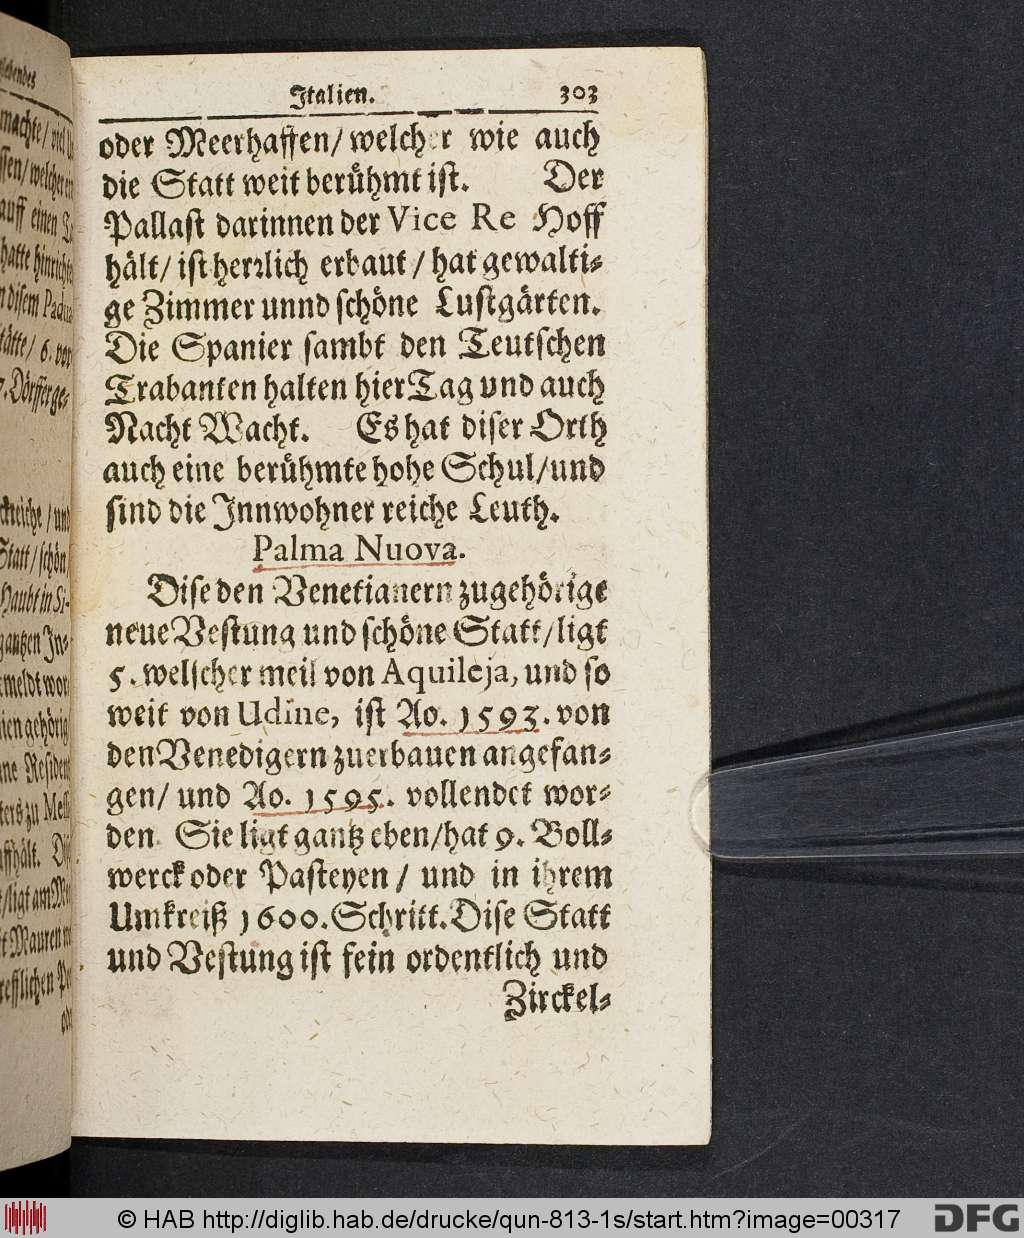 Italien. 303
oder Meerhaffen/ welcher wie auch
die Statt weit berühmt ist. Der
Pallast darinnen der Vice Re Hoff
hält/ ist herrlich erbaut / hat gewalti-
ge Zimmer unnd schöne Lustgärten.
Die Spanier sambt den Teutschen
Trabanten halten hier Tag und auch
Nacht Wacht. Es hat diser Orth
auch eine berühmte hohe Schul/und
sind die Innwohner reiche Leuth.
Palma Nuova.
Dise den Venetianern zugehörige
neue Vestung und schöne Statt/ligt
5. welscher meil von Aquileja, und so
weit von Udine, ist Ao. 1593. von
den Venedigern zuerbauen angefan-
gen/ und Ao. 1595. vollendet wor-
den. Sie ligt gantz eben/hat 9. Boll-
werck oder Pasteyen / und in ihrem
Umkreiß 1600. Schritt. Dise Statt
und Vestung ist fein ordentlich und
Zirckel-
© HAB http://diglib.hab.de/drucke/qun-813-1s/start.htm?image=00317
DFG